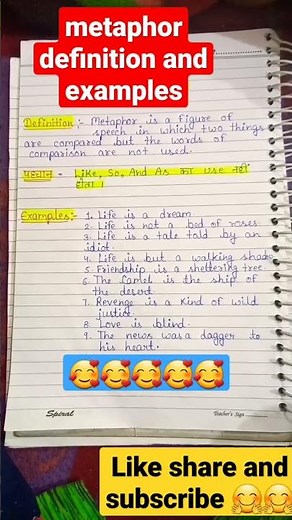 metaphor
definition and
examples
Definition:- Metaphor is a figure of
speech in which two things
are compared but the words of
comparison are not used.
पहचान - Like, So, And As का use नहीं
होता।
Examples:- 1. Life is a dream
2. Life is not a bed of roses.
3. Life is a tale told by an
idiot.
4. Life is but a walking shadow
5. Friendship is a sheltering tree.
6. The Camel is the ship of
the desert
7. Revenge is a kind of wild
justice.
8 Love is blind.
9. The news was a dagger to
his heart.
Spiral
Teacher's Sign
Like share and
subscribe